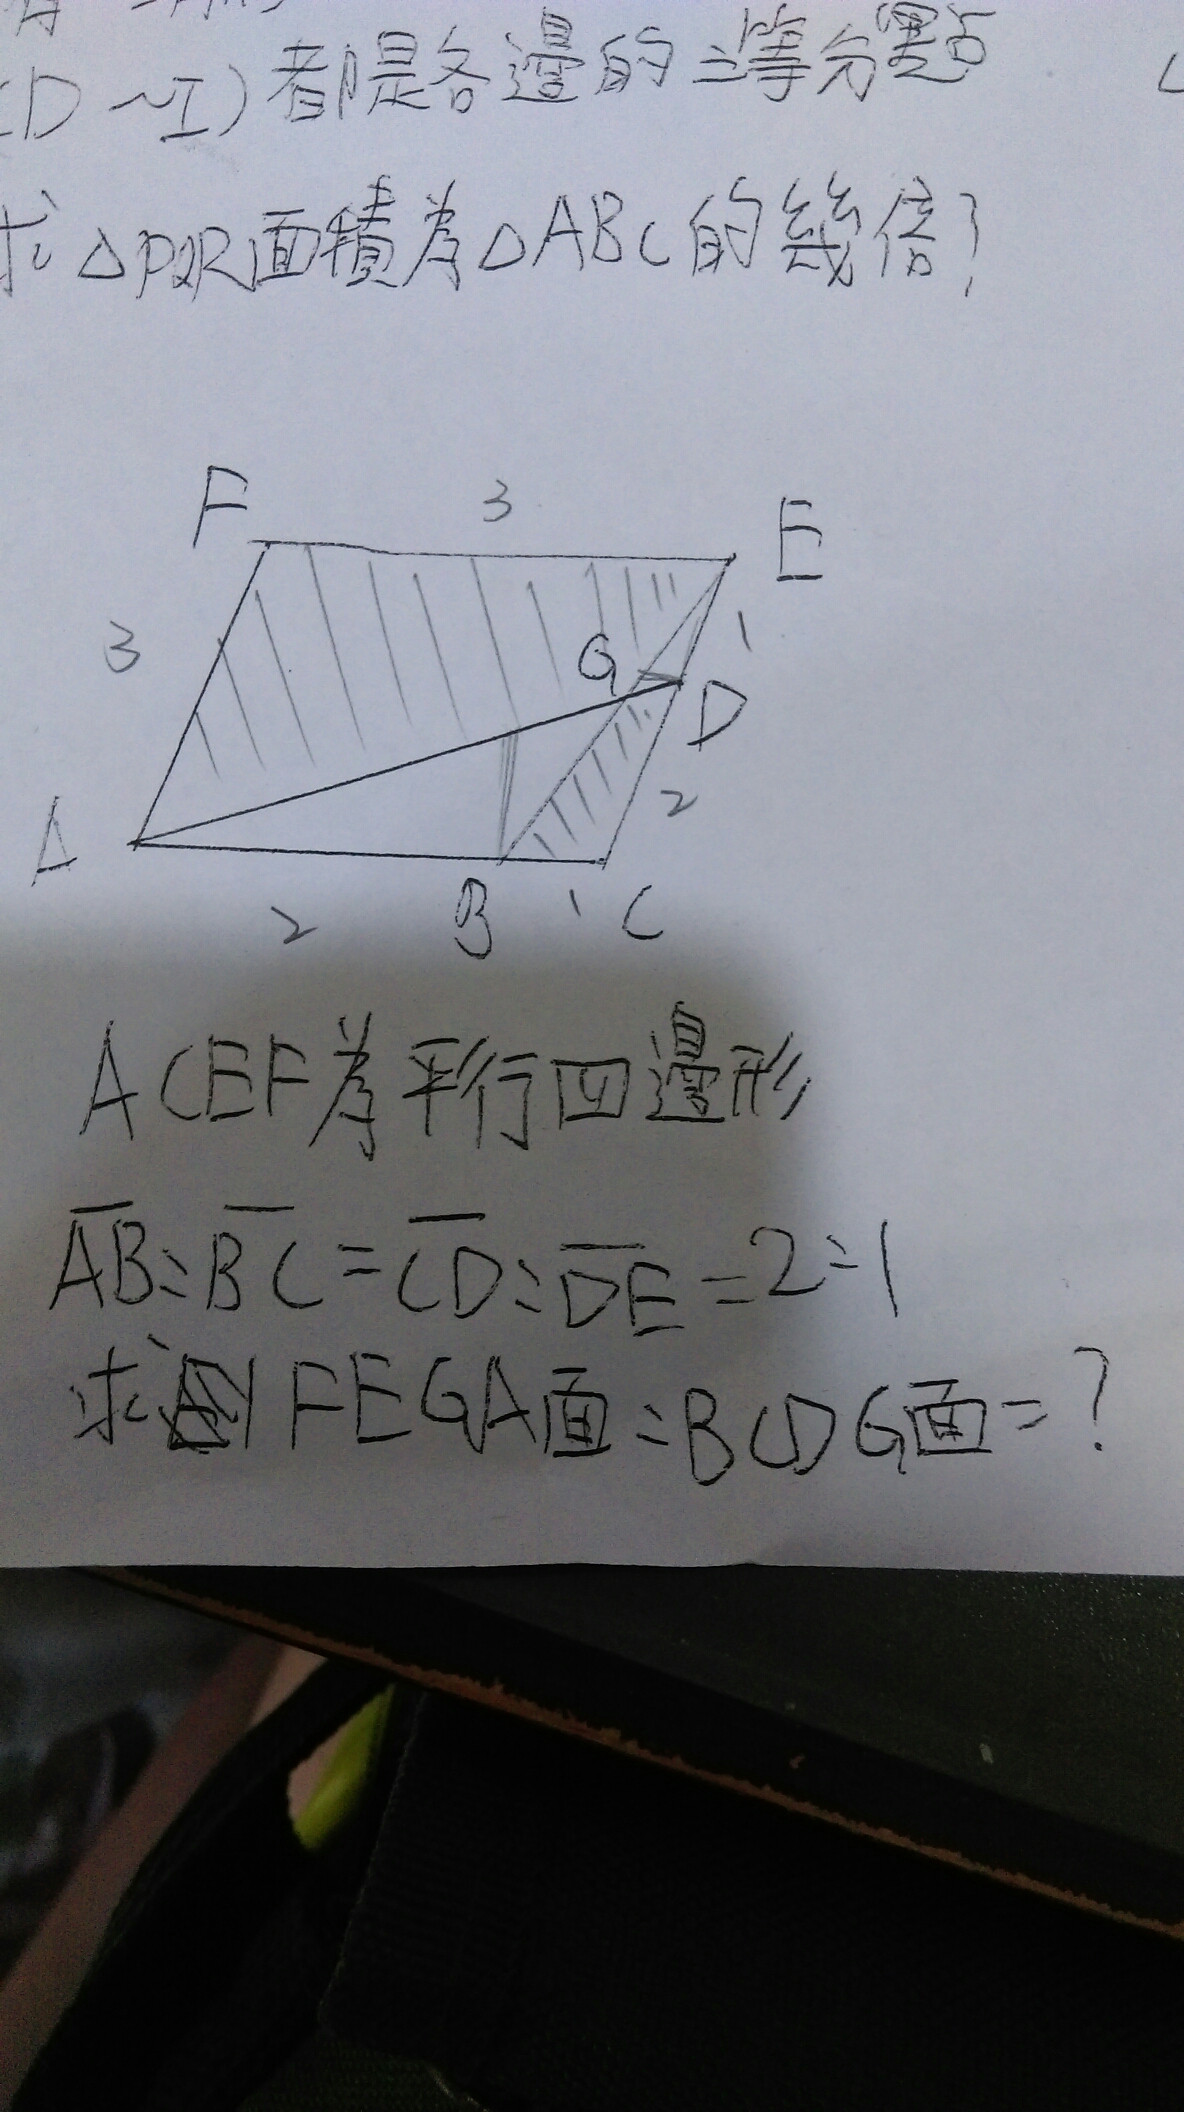 (D ~ I) 都是各邊的三等分點
求 △PQR面積為△ABC的幾倍?
F
3
E
3
1
G
D
2
A
2
B
1
C
ACEF為平行四邊形
AB:BC=CD:DE=2:1
求 FEGA面:BCDG面=?